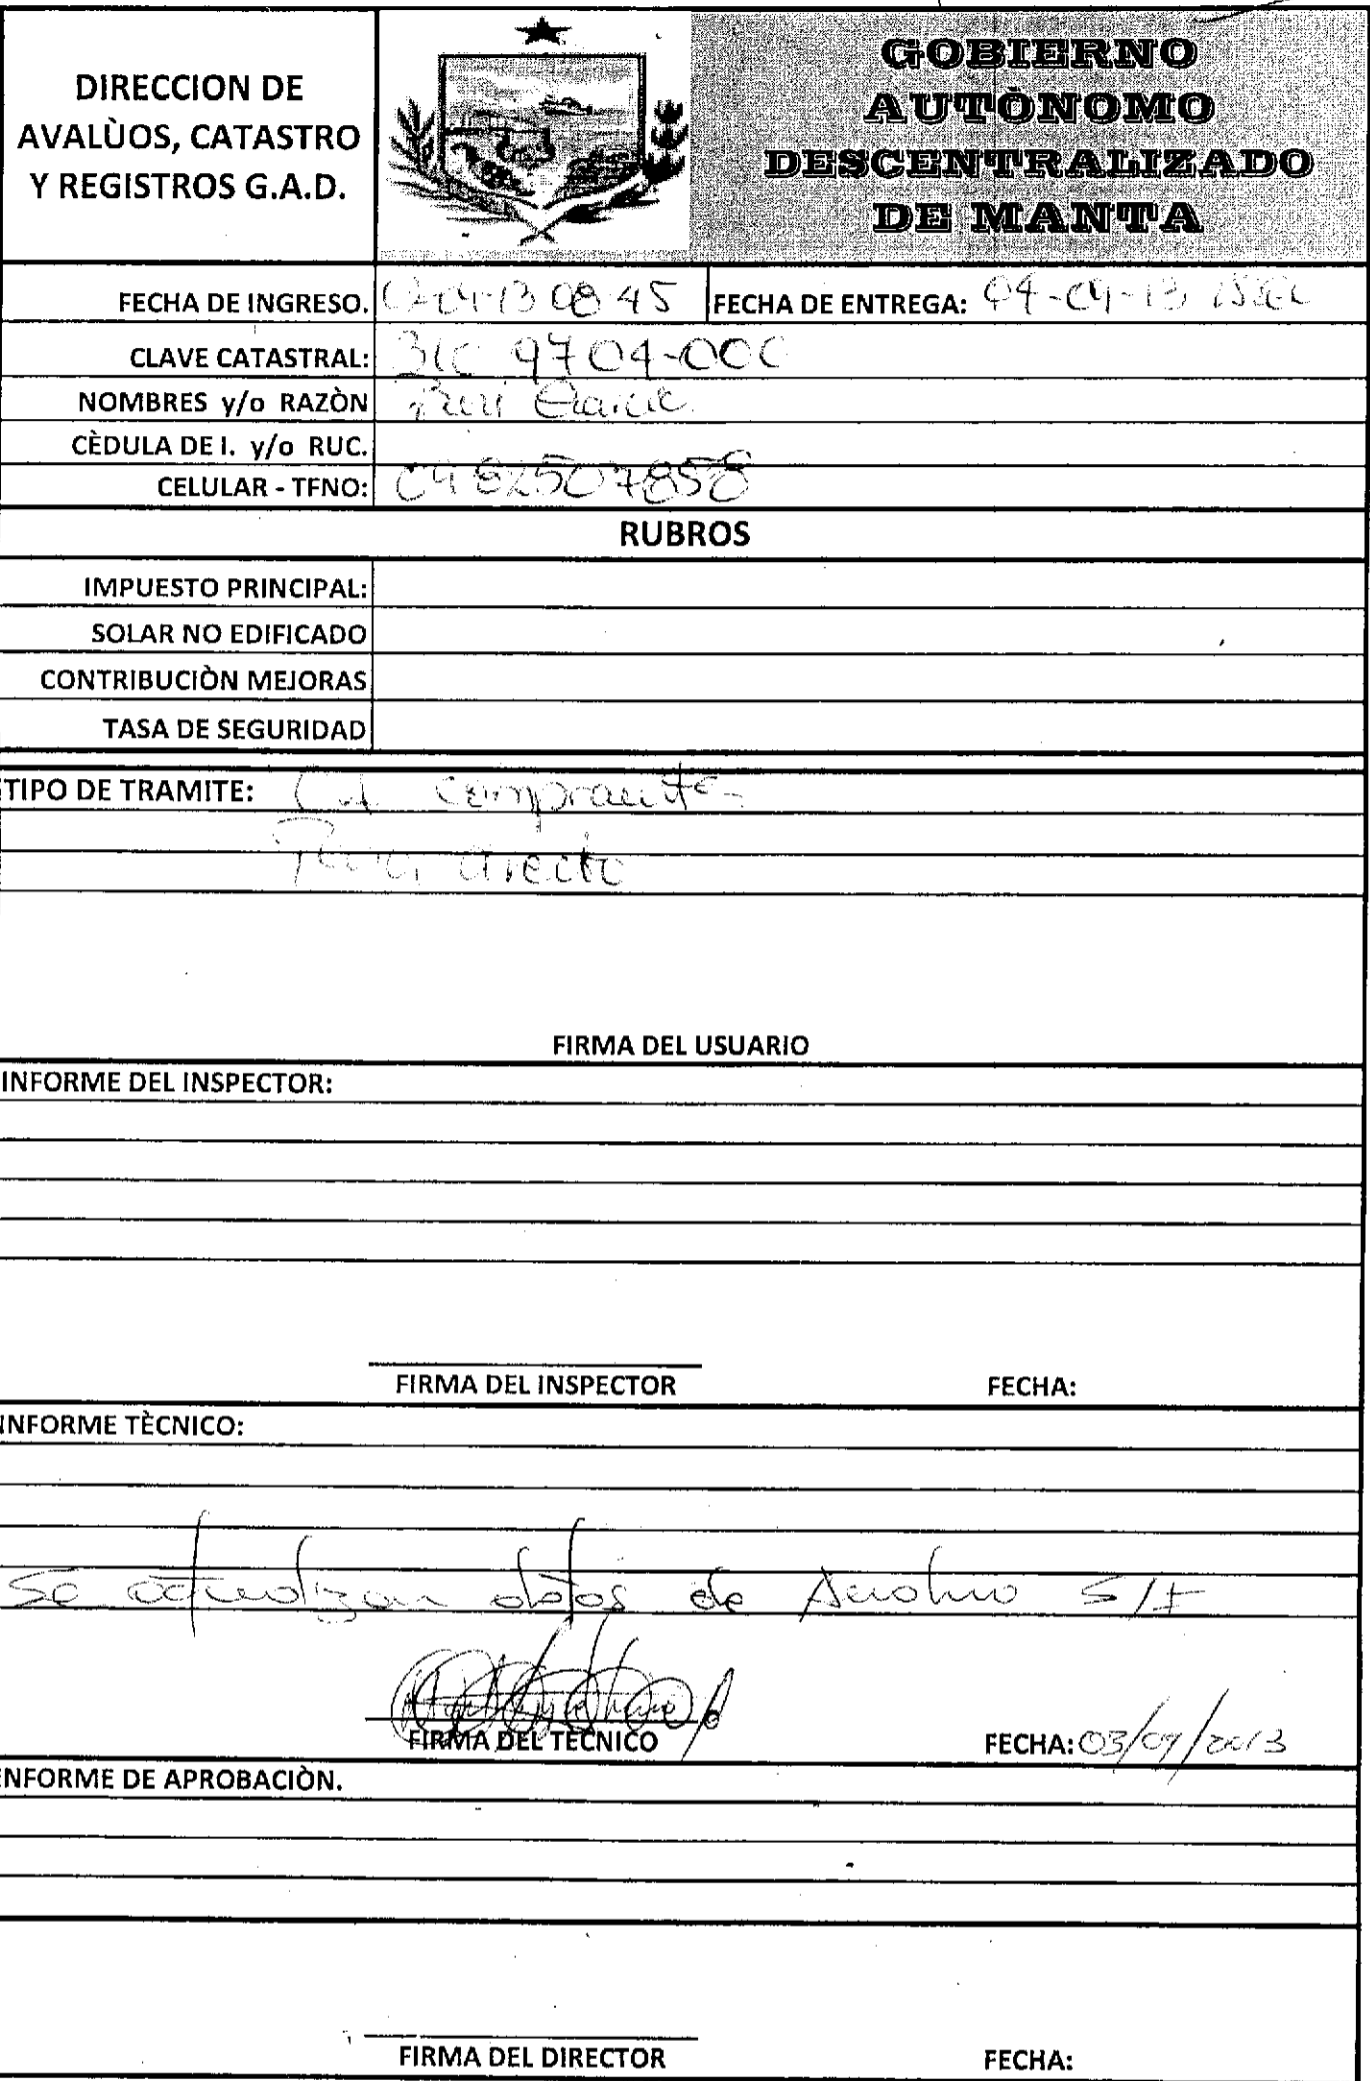 DIRECCION DE
AVALÙOS, CATASTRO
Y REGISTROS G.A.D.
GOBIERNO
AUTÒNOMO
DESCENTRALIZADO
DE MANTA
FECHA DE INGRESO. 08:45 FECHA DE ENTREGA: 04-04-13
CLAVE CATASTRAL: 310 9704-000
NOMBRES y/o RAZÒN
CÈDULA DE I. y/o RUC.
CELULAR - TFNO:
RUBROS
IMPUESTO PRINCIPAL:
SOLAR NO EDIFICADO
CONTRIBUCIÒN MEJORAS
TASA DE SEGURIDAD
TIPO DE TRAMITE:
FIRMA DEL USUARIO
INFORME DEL INSPECTOR:
FIRMA DEL INSPECTOR FECHA:
INFORME TÈCNICO:
Se actualizan datos de Archivo S/I
FIRMA DEL TECNICO FECHA: 03/04/2013
INFORME DE APROBACIÒN.
FIRMA DEL DIRECTOR FECHA: